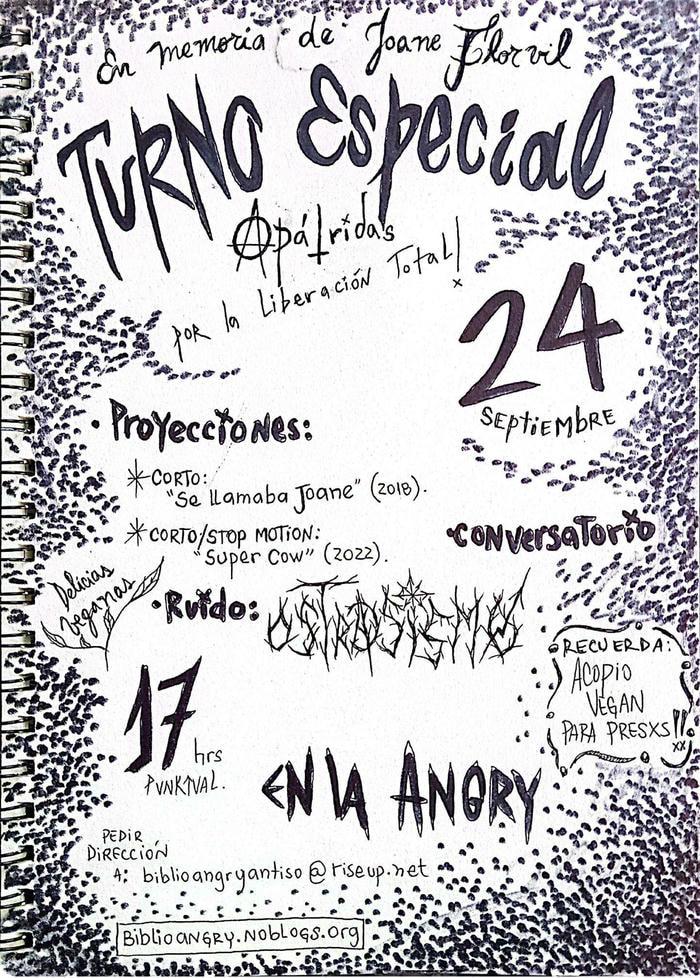 En memoria de Joane Florvil
Turno Especial
Apátridas
por la Liberación Total!
24
Septiembre
• Proyecciones:
* Corto:
"Se llamaba Joane" (2018).
* Corto/Stop Motion:
"Super Cow" (2022).
• Conversatorio
Delicias
Veganas
• Ruido:
RECUERDA:
ACOPIO
VEGAN
PARA PRESXS!!
17 hrs
PUNKTUAL.
EN LA ANGRY
PEDIR
DIRECCIÓN
A: biblioangryantiso@riseup.net
Biblioangry.noblogs.org